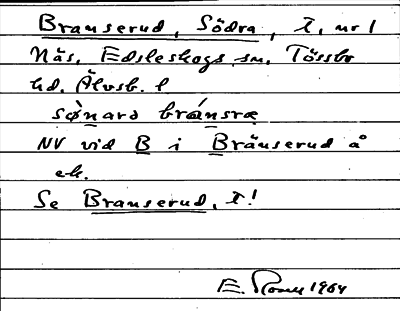 Branserud, Södra, t. nr 1
Näs, Edsleskogs sn. Tössbo
hd. Älvsb. l
sø̀nara brånsræ
NV vid B i Bränserud å
ek.
Se Branserud, t!
E. 1964